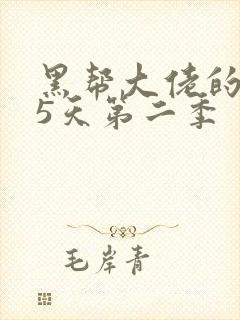 黑帮大佬的
5天第二季
毛岸青